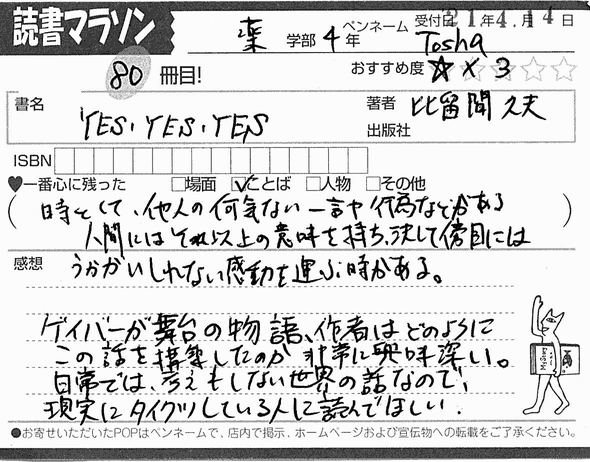 読書マラソン
薬 学部 4年 ペンネーム Tosha 受付日 21年4.14日
80 冊目! おすすめ度 ☆×3 ☆☆
書名 YES・YES・YES 著者 比留間 久夫
出版社
ISBN
♥一番心に残った □場面 ☑ことば □人物 □その他
(時として、他人の何気ない一言や行為などがある
人間にはそれ以上の意味を持ち、決して傍目には
感想 うかがいしれない感動を運ぶ時がある。)
ゲイバーが舞台の物語、作者はどのように
この話を構築したのか非常に興味深い。
日常では、考えもしない世界の話なので、
現実にタイクツしている人に読んでほしい.
●お寄せいただいたPOPはペンネームで、店内で掲示、ホームページおよび宣伝物への転載をご了承ください。